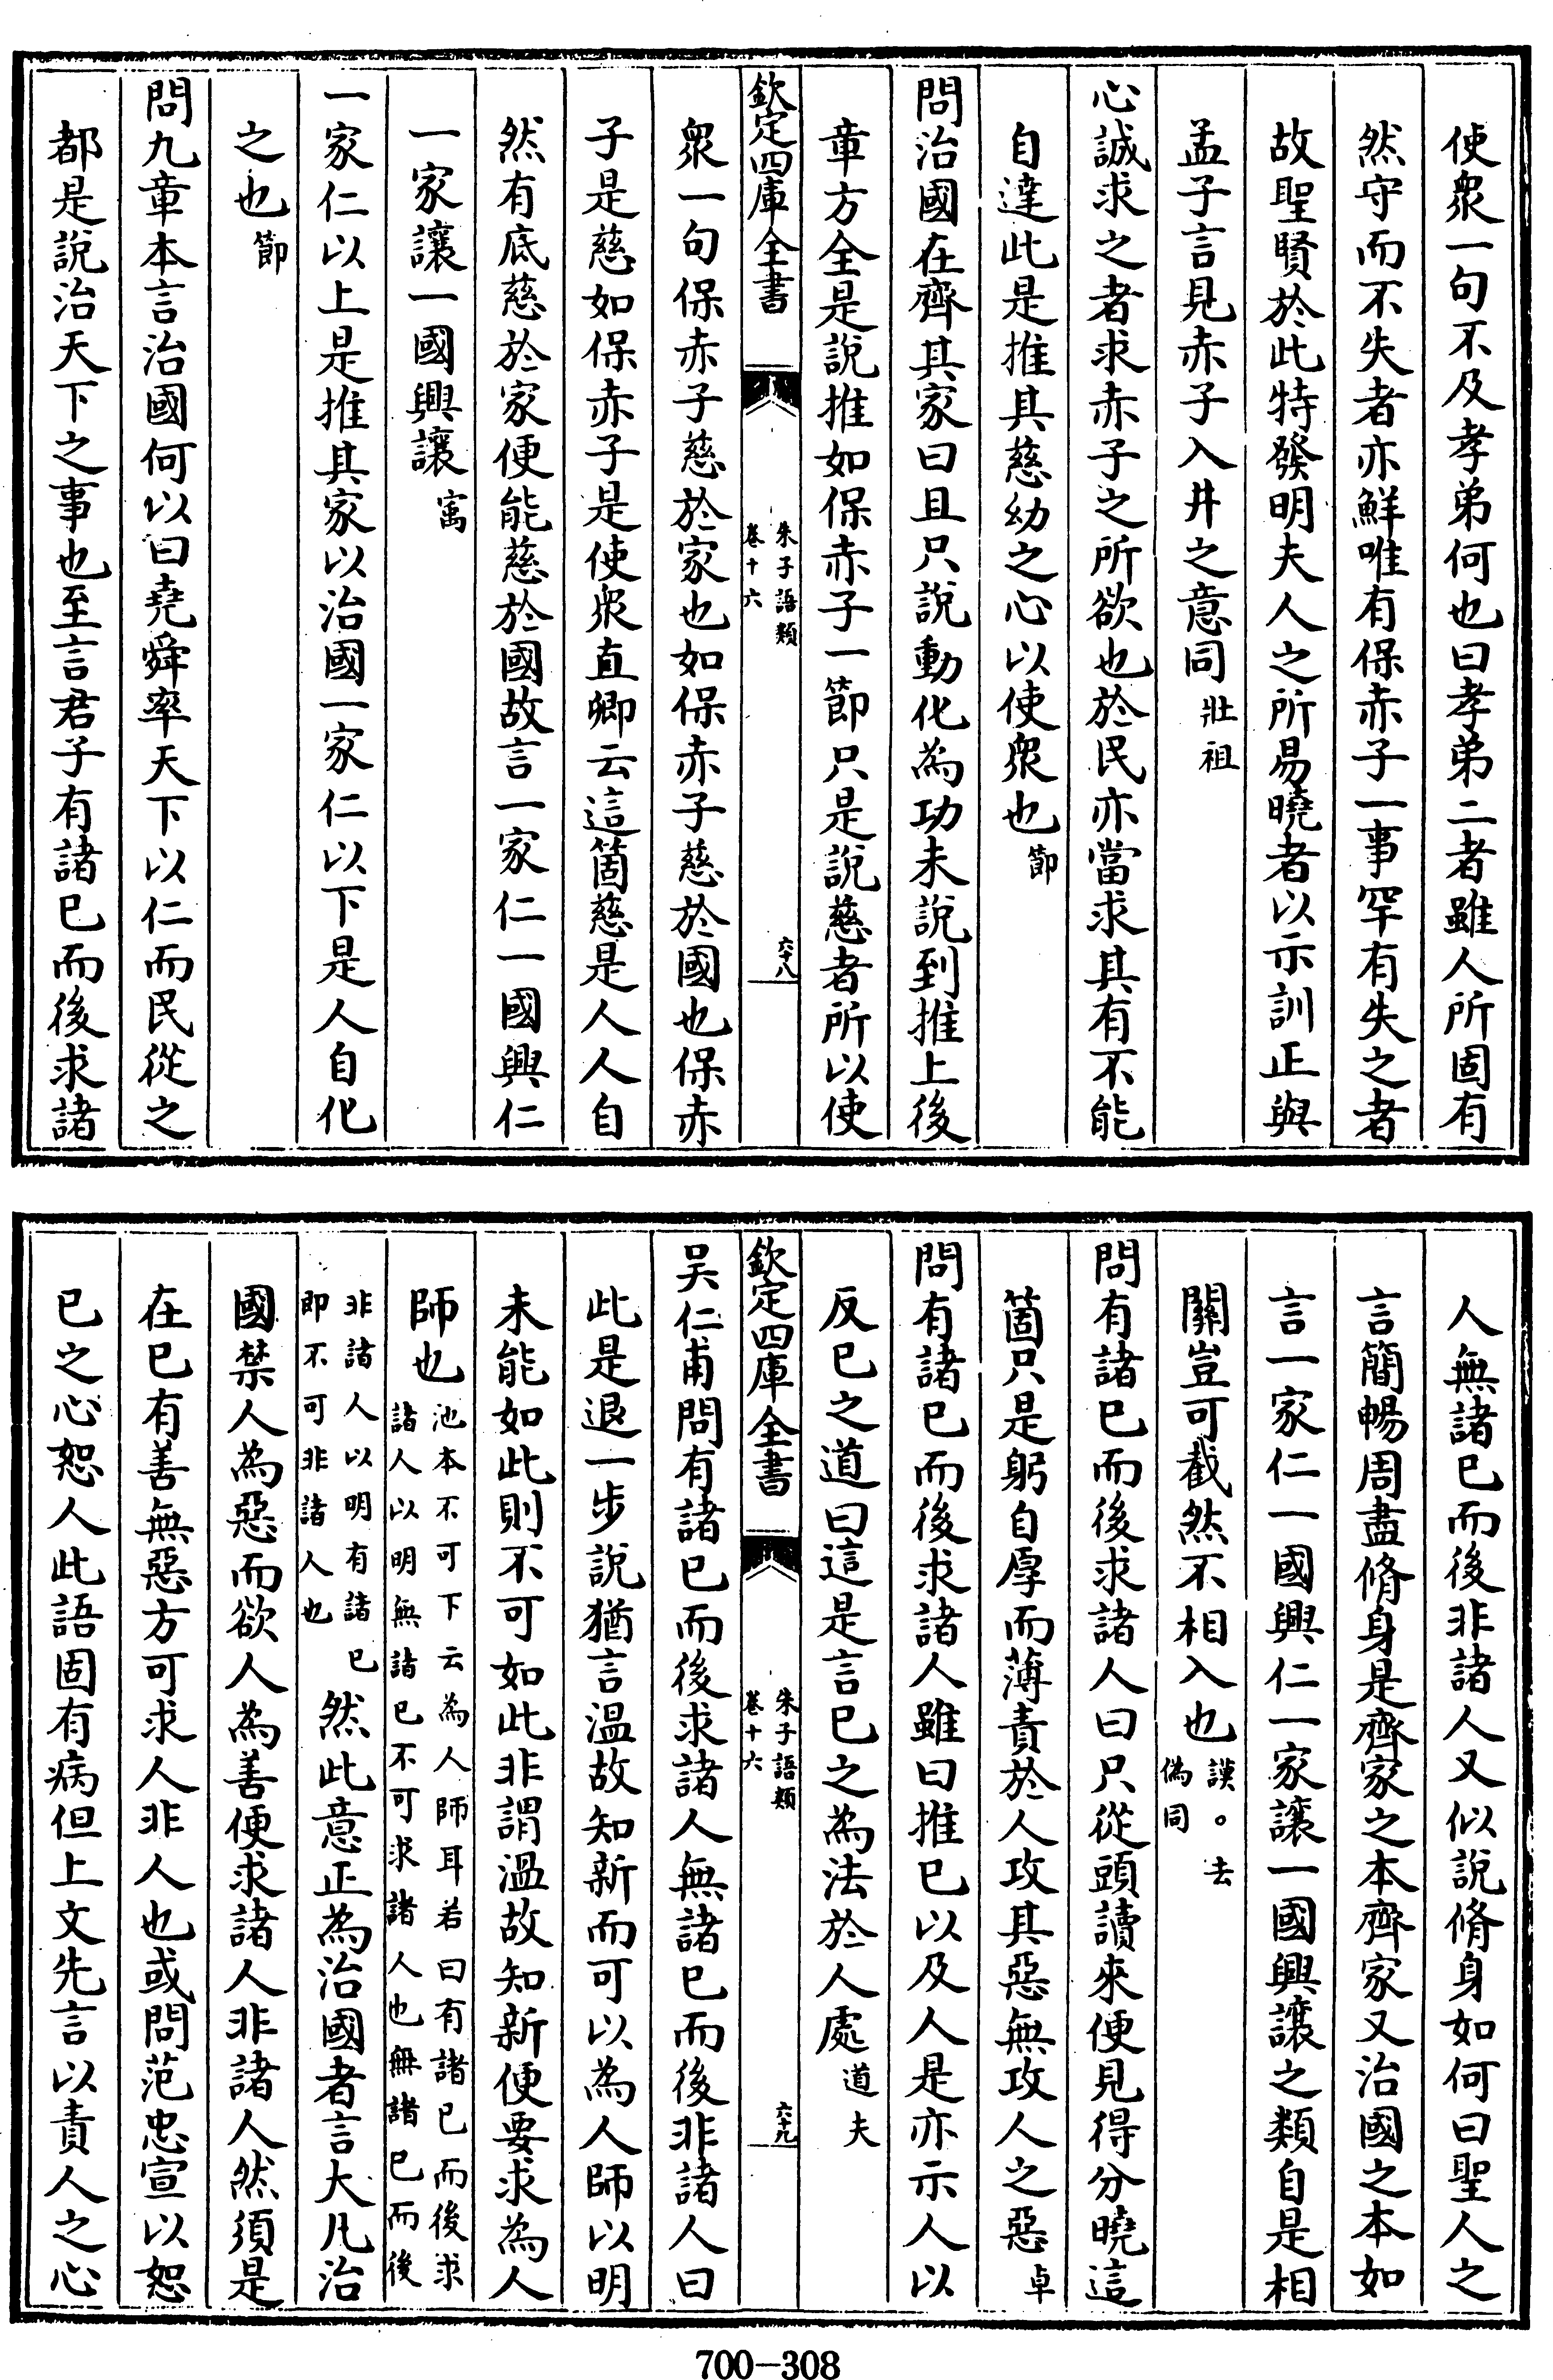 使衆一句不及孝弟何也曰孝弟二者雖人所固有
然守而不失者亦鮮唯有保赤子一事罕有失之者
故聖賢於此特發明夫人之所易曉者以示訓正與
孟子言見赤子入井之意同壯祖
心誠求之者求赤子之所欲也於民亦當求其有不能
自達此是推其慈幼之心以使衆也節
問治國在齊其家曰且只說動化為功未說到推上後
章方全是說推如保赤子一節只是說慈者所以使
欽定四庫全書
朱子語類
卷十六
六十八
衆一句保赤子慈於家也如保赤子慈於國也保赤
子是慈如保赤子是使衆直卿云這箇慈是人人自
然有底慈於家便能慈於國故言一家仁一國興仁
一家讓一國興讓㝢
一家仁以上是推其家以治國一家仁以下是人自化
之也節
問九章本言治國何以曰堯舜率天下以仁而民從之
都是說治天下之事也至言君子有諸已而後求諸
人無諸已而後非諸人又似說脩身如何曰聖人之
言簡暢周盡脩身是齊家之本齊家又治國之本如
言一家仁一國興仁一家讓一國興讓之類自是相
關豈可截然不相入也謨。去
偽同
問有諸已而後求諸人曰只從頭讀來便見得分曉這
箇只是躬自厚而薄責於人攻其惡無攻人之惡卓
問有諸已而後求諸人雖曰推已以及人是亦示人以
反已之道曰這是言已之為法於人處道夫
欽定四庫全書
朱子語類
卷十六
六十九
吴仁甫問有諸已而後求諸人無諸已而後非諸人曰
此是退一步說猶言溫故知新而可以為人師以明
未能如此則不可如此非謂溫故知新便要求為人
師也池本不可下云為人師耳若曰有諸已而後求
諸人以明無諸已不可求諸人也無諸已而後
非諸人以明有諸已
即不可非諸人也
然此意正為治國者言大凡治
國禁人為惡而欲人為善便求諸人非諸人然須是
在已有善無惡方可求人非人也或問范忠宣以恕
已之心恕人此語固有病但上文先言以責人之心
700-308